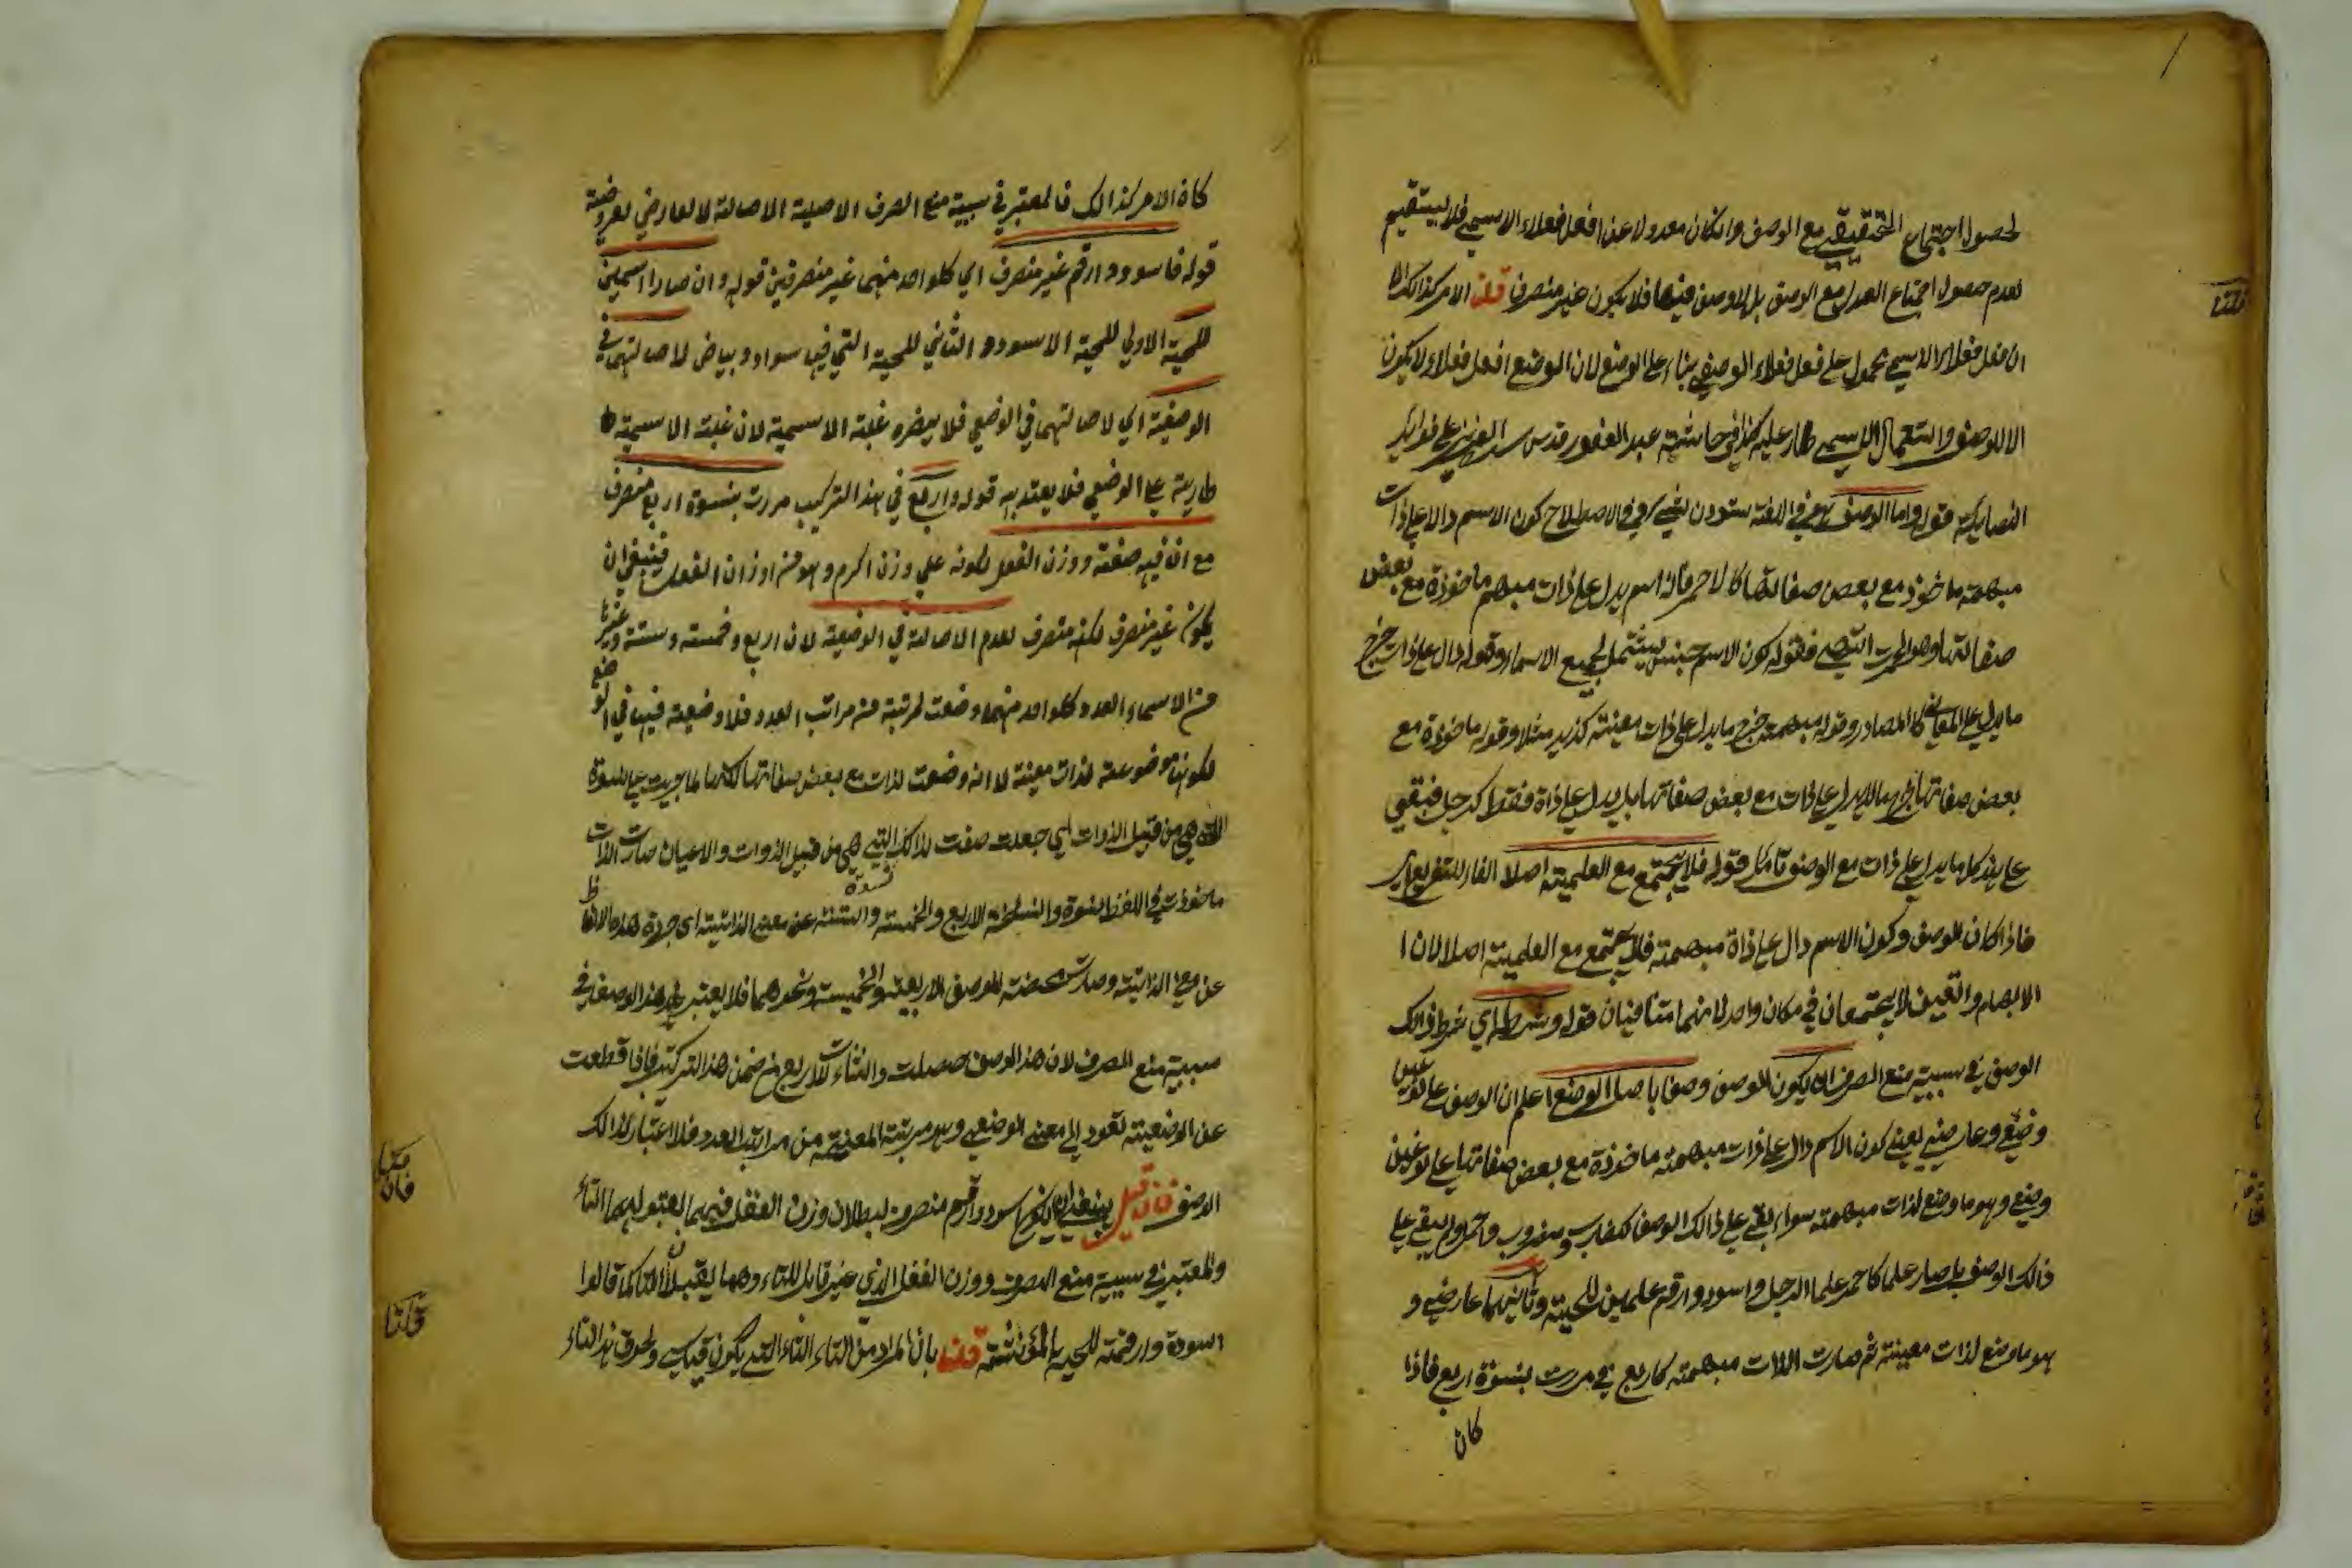 لحصول اجتماع التحقيقي مع الوصف وانكان معدولا عن افعل فعلاء الاسمي فلا يستقيم
لعدم حصول اجتماع العدل مع الوصف بل لا وصف فيها فلا يكون غير منصرف قلنا الامر كذالك الا
ان فعل فعلاء الاسمي محمول على فعل فعلاء الوصفي بناء على الوضع لان الوضع افعل فعلاء لا يكون
الا للوصف واستعمال الاسمي طار عليه كذا في حاشية عبد الغفور قدس سره العزيز على فوايد
الضيايية قوله واما الوصف فهو في اللغة ستودن شي وفي الاصطلاح كون الاسم دالا على ذات
مبهمة ماخوذ مع بعض صفاتها كالاحمر فانه اسم يدل على ذات مبهم ماخوذة مع بعض
صفاتها وهو الحمرة فقوله كون الاسم جنس يشتمل لجميع الاسماء وقوله دال على ذات خرج
ما يدل على المعاني كالمصادر وقوله مبهمة خرج ما يدل على ذات معينة كزيد مثلا وقوله ماخوذة مع
بعض صفاتها خرج ما لا يدل على ذات مع بعض صفاتها بل يدل على ذاة فقط كرجل فبقي
على هذا كل ما يدل على ذات مع الوصف تامل قوله فلا يجتمع مع العلمية اصلا الفاء للتفريع اي
فاذا كان الوصف وكون الاسم دال على ذاة مبهمة فلا يجتمع مع العلمية اصلا لان ا
الابهام والتعين لا يجتمعان في مكان واحد لانهما متنافيان قوله وشرطه اي شرط ذالك
الوصف في سببية منع الصرف ان يكون الوصف وصفا باصل الوضع اعلم ان الوصف على نوعين
وضعي وعارضي يعني كون الاسم دال على ذات مبهمة ماخوذة مع بعض صفاتها على نوعين
وضعي وهو ما وضع لذات مبهمة سواء بقي على ذالك الوصف كضارب ومضروب واحمر ولم يبقي على
ذالك الوصف بل صار علما كاحمر علما لرجل واسود وارقم علمين للحية وثانيهما عارضي و
هو ما وضع لذات معينة ثم صارت الذات مبهمة كاربع في مررت بنسوة اربع فاذا
كان
كان الامر كذالك فالمعتبر في سببية منع الصرف الاصلية الاصالة لا العارضي لعروضية
قوله فاسود وارقم غير منصرف اي كلواحد منهما غير منصرفين قوله وان صارا اسمين
للحية الاولي للحية الاسود والثاني للحية التي فيها سواد وبياض لاصالتهما في
الوصفية اي لاصالتهما في الوضعي فلا يضره غلبة الاسمية لان غلبة الاسمية
طارية على الوضعي فلا يعتد به قوله واربع في هذا التركيب مررت بنسوة اربع منصرف
مع ان فيه صفة ووزن الفعل لكونه علي وزن اكرم وهو من اوزان الفعل فينبغي ان
يكون غير منصرف لكنه منصرف لعدم الاصالة في الوضعية لان اربع وخمسة وستة وغيرها
من الاسماء العدد كلواحد منهما وضعت لمرتبة من مراتب العدد فلا وضعية فيها في الوضع
لكونها موضوعة لذات معينة لا انه وضعت لذات مع بعض صفاتها لكنها لما جريت على نسوة
التي هي من قبيل الذوات اي جعلت صفت لذالك التي هي من قبيل الذوات والاعيان صارت الذات
ماخوذت في اللفظ الاربع والخمسة والستة عن معنى الذاتية اي جردة هذه الالفاظ
عن معنى الذاتية وصارت محضة للوصف الاربعة والخمسة ونحوهما فلا يعتبر هذا الوصف في
سببية منع الصرف لان هذا الوصف حصلت لاربع من ضمن هذا التركيب فاذا قطعت
عن الوضعية تعود الى معنى الوضعي وهو مرتبة المعنية من مراتب العدد فلا اعتبار لذالك
الوصف فان قيل ينبغي ان يكون اسود وارقم منصرف لبطلان وزن الفعل فيهما لقبولهما التاء
والمعتبر في سببية منع الصرف ووزن الفعل الذي غير قابل للتاء وهما يقبلان التاء كما قالوا
اسودة وارقمة للحية المؤنثة قلنا بان المراد من التاء التاء التي يكون قياسي ولحوق هذا التاء